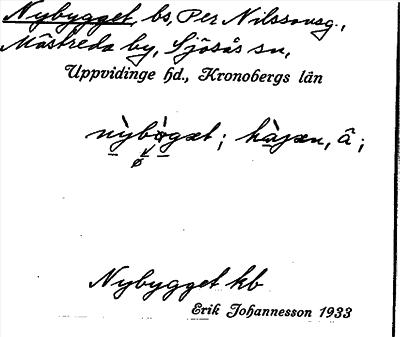 Nybygget, bs, Per Nilssonsg.,
Måstreda by, Sjösås sn,
Uppvidinge hd., Kronobergs län
nỳbògət; hàjən, â;
ø
Nybygget kb
Erik Johannesson 1933